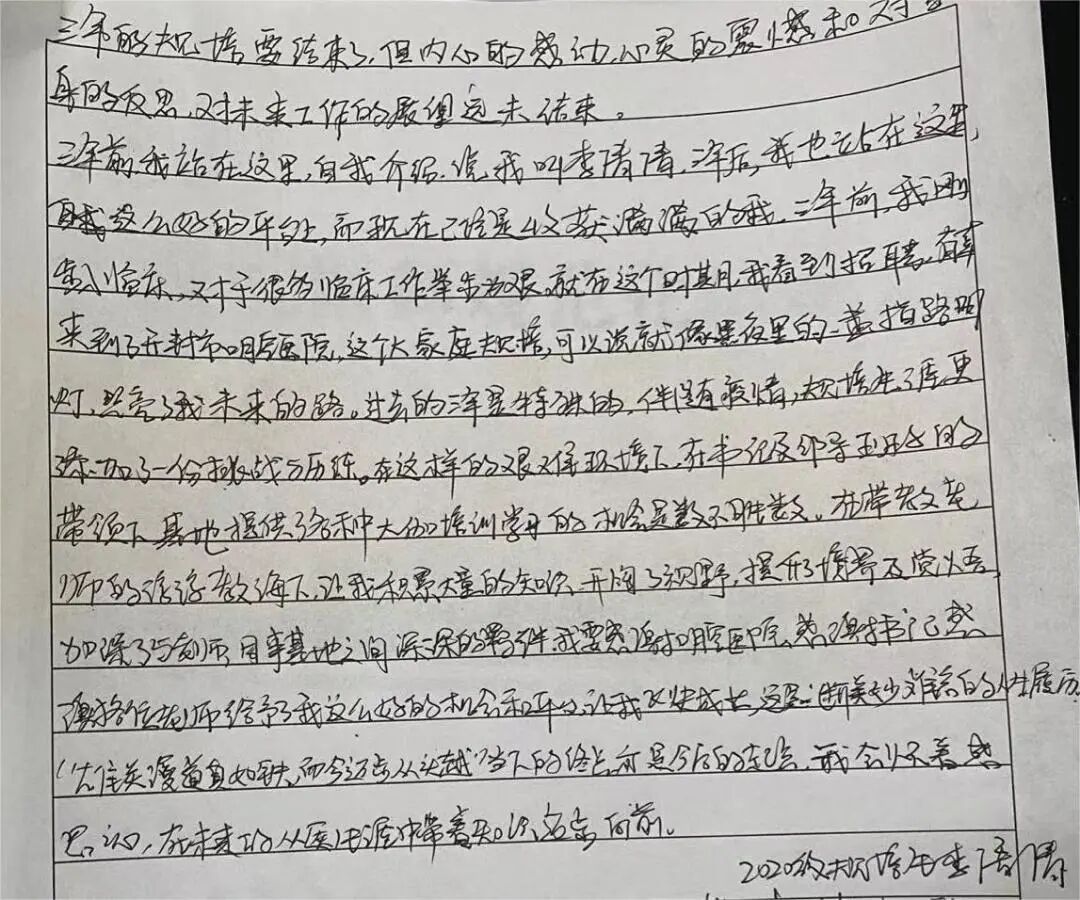 三年的规培要结束了,但内心的感动,心灵的震撼和对自
身的反思,对未来工作的展望远未结束。
三年前,我站在这里,自我介绍,说,我叫李倩倩,三年后,我也站在这里,
这么好的平台上,而现在已经是收获满满的我。三年前,我刚
步入临床,对于很多临床工作举步为艰,就在这个时期,我看到招聘,有幸
来到了开封市口腔医院,这个大家庭规培,可以说就像黑夜里的一盏指路明
灯,照亮了我未来的路。过去的三年是特殊的,伴随有疫情,规培生了库,更
添加了一份挑战与历练。在这样的艰难环境下,在书记及邵导玉
带领下,基地提供了各种大咖培训学习的机会是数不胜数。在带教老
师的谆谆教诲下,让我积累大量的知识,开阔了视野,提升了境界及觉悟
加深了与老师、同事基地之间深深的羁绊,我要感谢口腔医院,感谢书记,感
谢各位老师给予了我这么好的机会和平台,让我飞快成长,这是一断美妙难言的人生履历,
"雄关漫道真如铁,而今迈步从头越"当下的终点,亦是今后的起点,我会怀着感
恩之心,在未来的从医生涯中带着知识,勇向前。
2020级规培生李倩倩